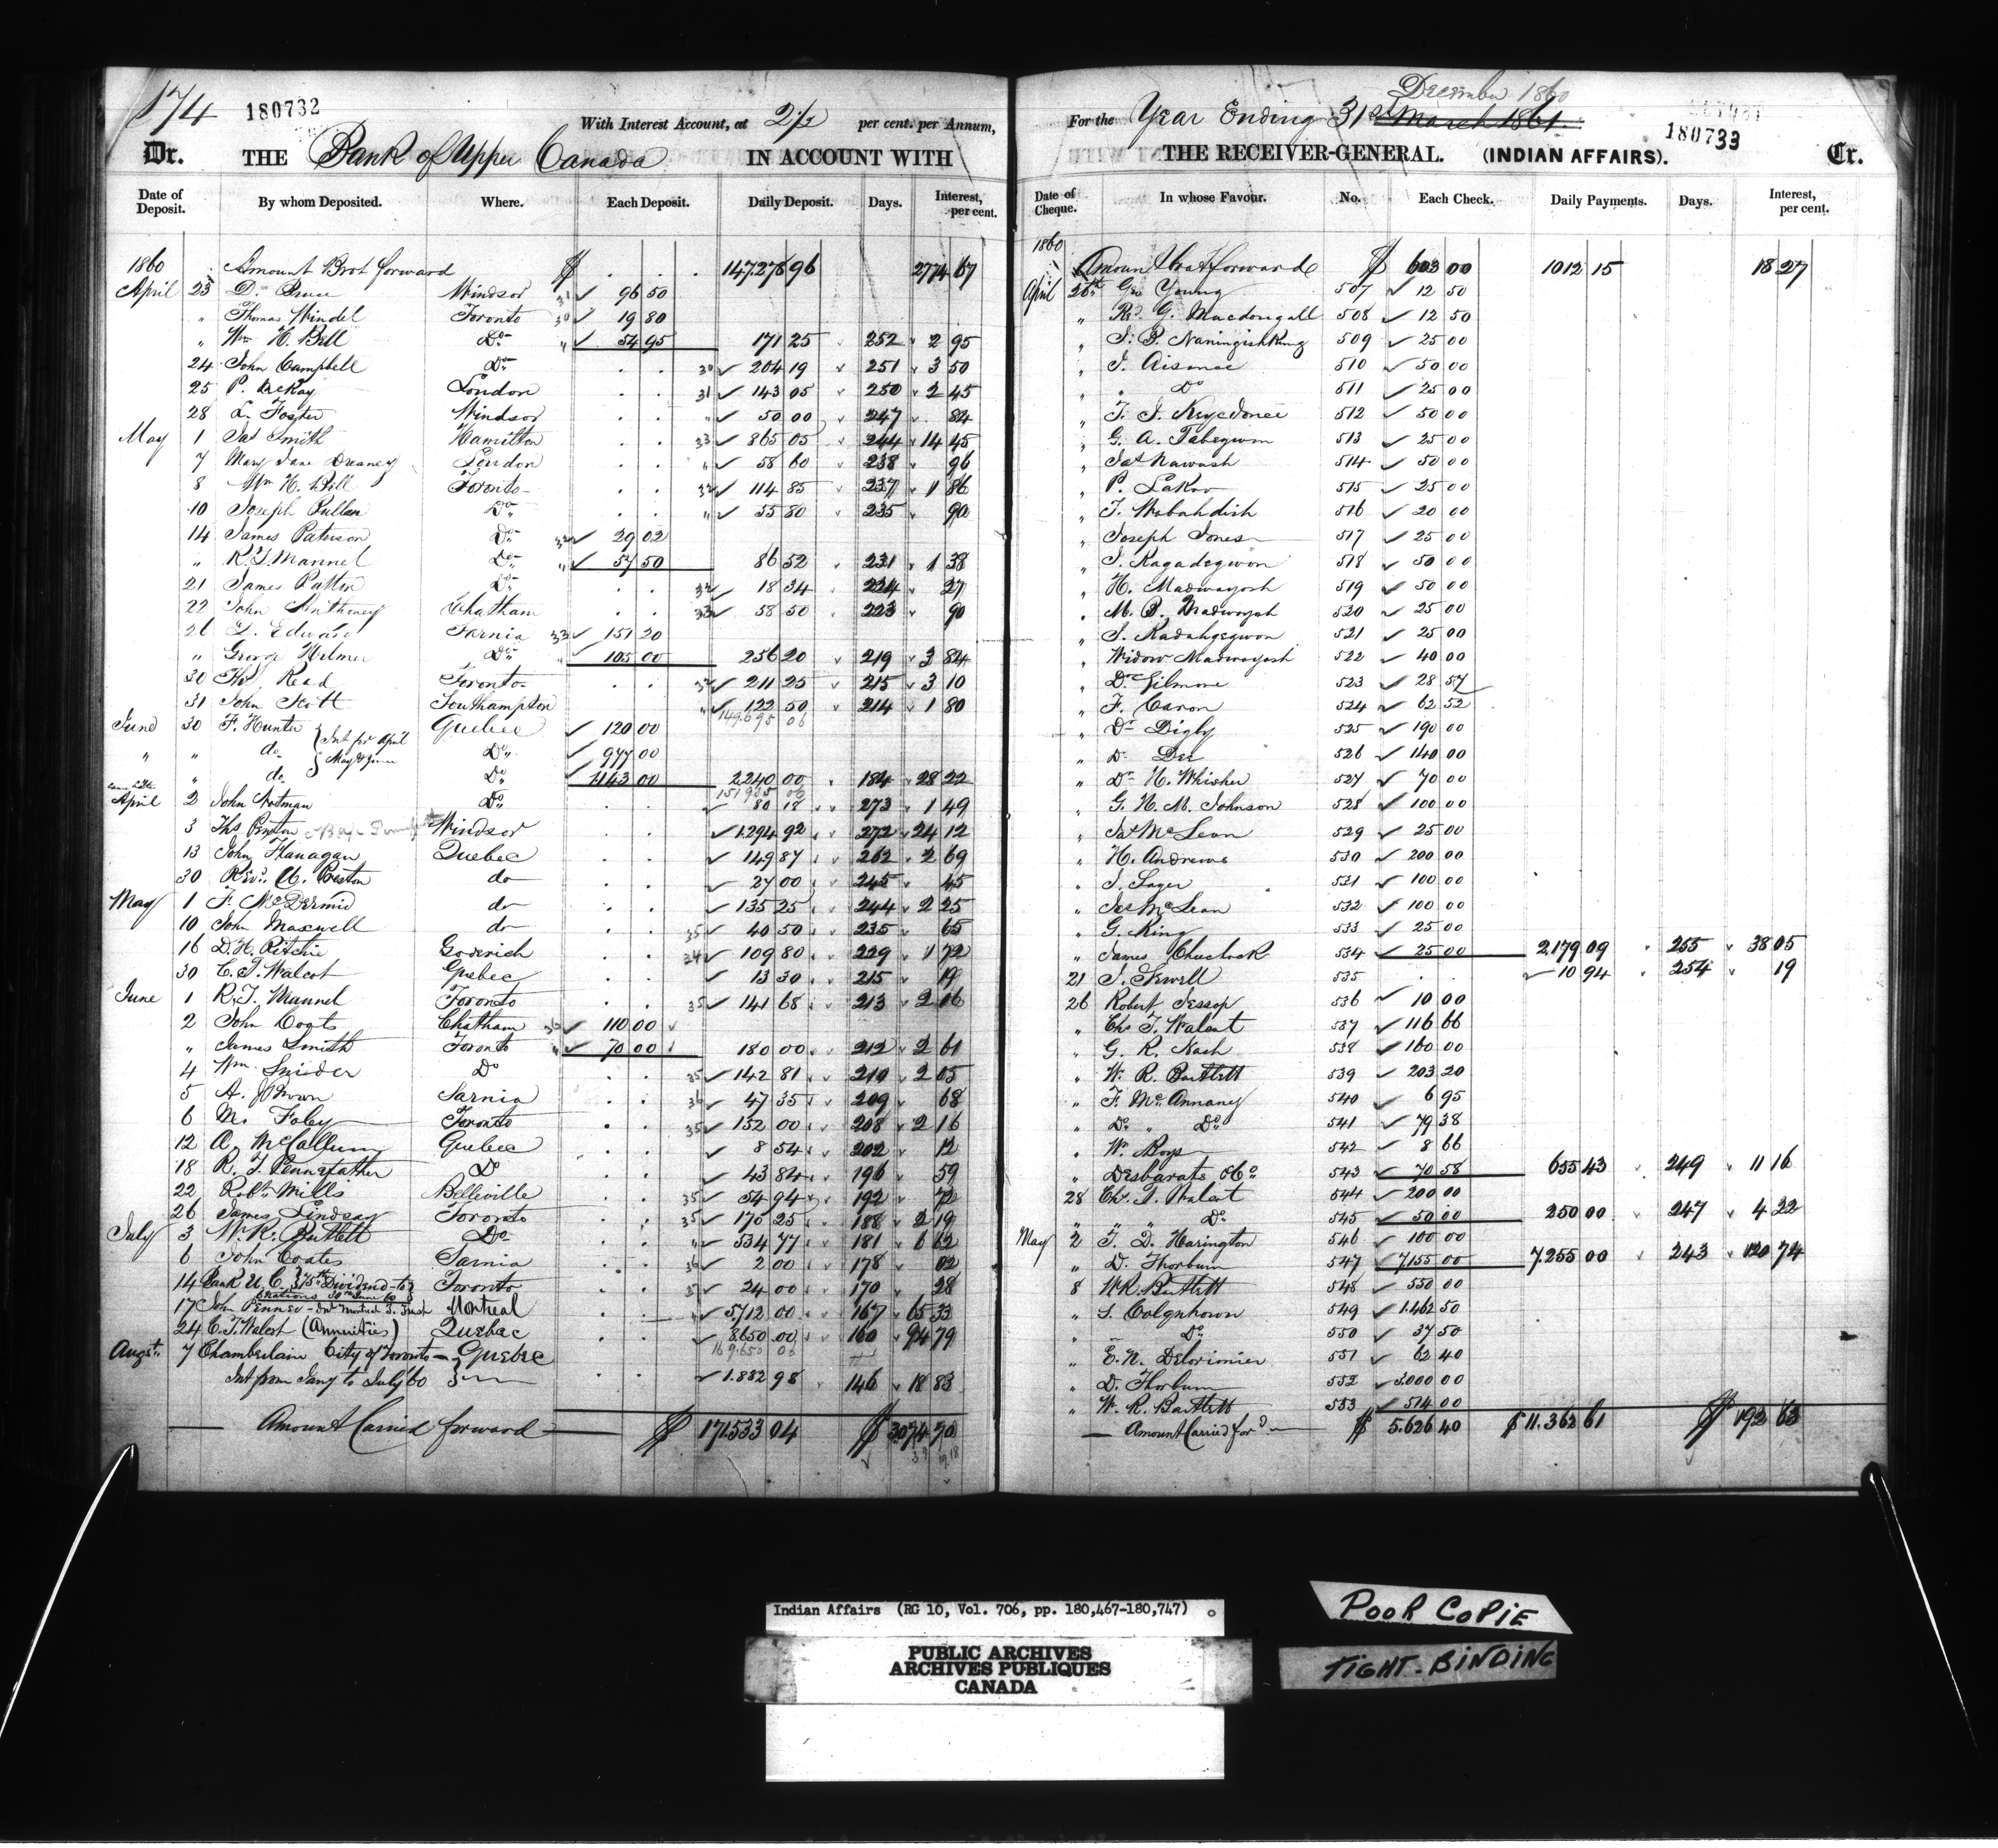 174
180732
With Interest Account, at 2½ per cent. per Annum,
Dr. THE Bank of Upper Canada IN ACCOUNT WITH
Date of Deposit. By whom Deposited. Where. Each Deposit. Daily Deposit. Days. Interest, per cent.
1860 " Amount Brot forward $ . . . 147.276 96 2774 67
April 23 D. Windsor 31 ✓ 96 50
" Thomas Windel Toronto 30 ✓ 19 80
" Wm H. Bell Do " ✓ 54 95 171 25 252 2 95
24 John Campbell Do 30 ✓ 204 19 251 3 50
25 P. McKay London 31 ✓ 143 05 250 2 45
28 L. Foster Windsor " ✓ 50 00 247 84
May 1 Jas Smith Hamilton 33 ✓ 865 05 244 14 45
7 Mary Jane Dreaney London " ✓ 58 60 238 96
8 Wm H. Bell Toronto 32 ✓ 114 85 237 1 86
10 Joseph Pullen Do " ✓ 55 80 235 90
14 James Paterson Do 32 ✓ 29 02
" R. T. Mannel Do " ✓ 57 50 86 52 231 1 38
21 James Patton Do 32 ✓ 18 34 224 27
22 John Anthoney Chatham 33 ✓ 58 50 223 90
26 D. Edward Sarnia 33 ✓ 151 20
" George Hilmer Do " ✓ 105 00 256 20 219 3 84
30 Thos Read Toronto 32 ✓ 211 25 215 3 10
31 John Scott Southampton " ✓ 122 50 214 1 80
149.695 06
June 30 F. Hunter { Int for April Quebec ✓ 120 00
" " do } May & June Do ✓ 977 00
" do Do ✓ 1143 00 2.240 00 184 28 22
151.935 06
April 2 John Notman Do ✓ 80 18 273 1 49
3 Ths Renton Windsor ✓ 1.294 92 272 24 12
13 John Flanagan Quebec ✓ 149 87 262 2 69
30 Revd. A. Preston do ✓ 27 00 245 45
May 1 F. McDermid do ✓ 135 25 244 2 25
10 John Maxwell do 35 ✓ 40 50 235 65
16 D. H. Ritchie Goderich 34 ✓ 109 80 229 1 72
30 C. T. Walcot Quebec ✓ 13 30 215 19
June 1 R. T. Maunel Toronto 35 ✓ 141 68 213 2 06
2 John Coats Chatham 36 ✓ 110 00
" James Smith Toronto " ✓ 70 00 180 00 212 2 61
4 Wm. Snider Do 35 ✓ 142 81 210 2 05
5 A. Brown Sarnia 36 ✓ 47 35 209 68
6 M. Foley Toronto 35 ✓ 152 00 208 2 16
12 A. McCallum Quebec ✓ 8 54 202 12
18 R. T. Pennefather Do ✓ 43 84 196 59
22 Robt. Mills Belleville 35 ✓ 54 94 192 72
26 James Lindsay Toronto 35 ✓ 170 25 188 2 19
July 3 W. R. Bartlett Do " ✓ 534 77 181 6 62
6 John Coates Sarnia 36 ✓ 2 00 178 02
14 Bank U. C. 75th Dividend Toronto ✓ 24 00 170 28
30th June 60
17 John Penner - Montreal Montreal ✓ 5.712 00 167 65 33
24 C. T. Walcot (Annuities) Quebec ✓ 8650 00 160 94 79
169.650 06
Augst. 7 Chamberlain City of Toronto - } Quebec
Int from Jany to July 60 } ✓ 1.882 98 146 18 83
Amount Carried forward $ 171.533 04 $ 3074 70
December 1860
For the Year Ending 31st March 1861.
180733
THE RECEIVER-GENERAL. (INDIAN AFFAIRS). Cr.
Date of Cheque. In whose Favour. No. Each Check. Daily Payments. Days. Interest, per cent.
1860
Amount brot forward $ 603 00 1012 15 18 27
April 20th Geo Young 507 ✓ 12 50
" Rd. G. Macdougall 508 ✓ 12 50
" J. B. Naningishkung 509 ✓ 25 00
" J. Aisance 510 ✓ 50 00
" " Do 511 ✓ 25 00
" 512 ✓ 50 00
" G. A. Tabegwon 513 ✓ 25 00
" Jas Nawash 514 ✓ 50 00
" P. 515 ✓ 25 00
" T. Wabahdish 516 ✓ 20 00
" Joseph Jones 517 ✓ 25 00
" J. Kagadegwon 518 ✓ 50 00
" H. Madwayosh 519 ✓ 50 00
" M. B. Madwayosh 520 ✓ 25 00
" J. Kadahgegwon 521 ✓ 25 00
" Widow Madwayosh 522 ✓ 40 00
" Dr Gilmore 523 ✓ 28 57
" F. Caron 524 ✓ 62 52
" Dr Digby 525 ✓ 190 00
" Dr Dee 526 ✓ 140 00
" Dr H. Whicher 527 ✓ 70 00
" G. H. M. Johnson 528 ✓ 100 00
" Jas McLean 529 ✓ 25 00
" H. Andrews 530 ✓ 200 00
" J. Sager 531 ✓ 100 00
" Jas McLean 532 ✓ 100 00
" G. King 533 ✓ 25 00
" James Chechock 534 ✓ 25 00 2.179 09 255 38 05
21 J. Sewell 535 . . ✓ 10 94 254 19
26 Robert Jessop 536 ✓ 10 00
" Chs T. Walcot 537 ✓ 116 66
" G. R. Nash 538 ✓ 160 00
" W. R. Bartlett 539 ✓ 203 20
" F. McAnnany 540 ✓ 6 95
" Do " Do 541 ✓ 79 38
" Wm Boys 542 ✓ 8 66
" Desbarats & Co 543 ✓ 70 58 655 43 249 11 16
28 Chs. T. Walcot 544 ✓ 200 00
" " " Do 545 ✓ 50 00 250 00 247 4 22
May 2 T. D. Harington 546 ✓ 100 00
" D. Thorburn 547 ✓ 7.155 00 7.255 00 243 120 74
8 W. R. Bartlett 548 ✓ 550 00
" S. Colquhoun 549 ✓ 1.462 50
" Do 550 ✓ 37 50
" E. N. Delorimier 551 ✓ 62 40
" D. Thorburn 552 ✓ 3.000 00
" W. R. Bartlett 553 ✓ 514 00
Amount Carried ford $ 5.626 40 $ 11.362 61 $ 192 63
Indian Affairs (RG 10, Vol. 706, pp. 180,467-180,747)
PUBLIC ARCHIVES
ARCHIVES PUBLIQUES
CANADA
POOR COPIE
TIGHT-BINDING